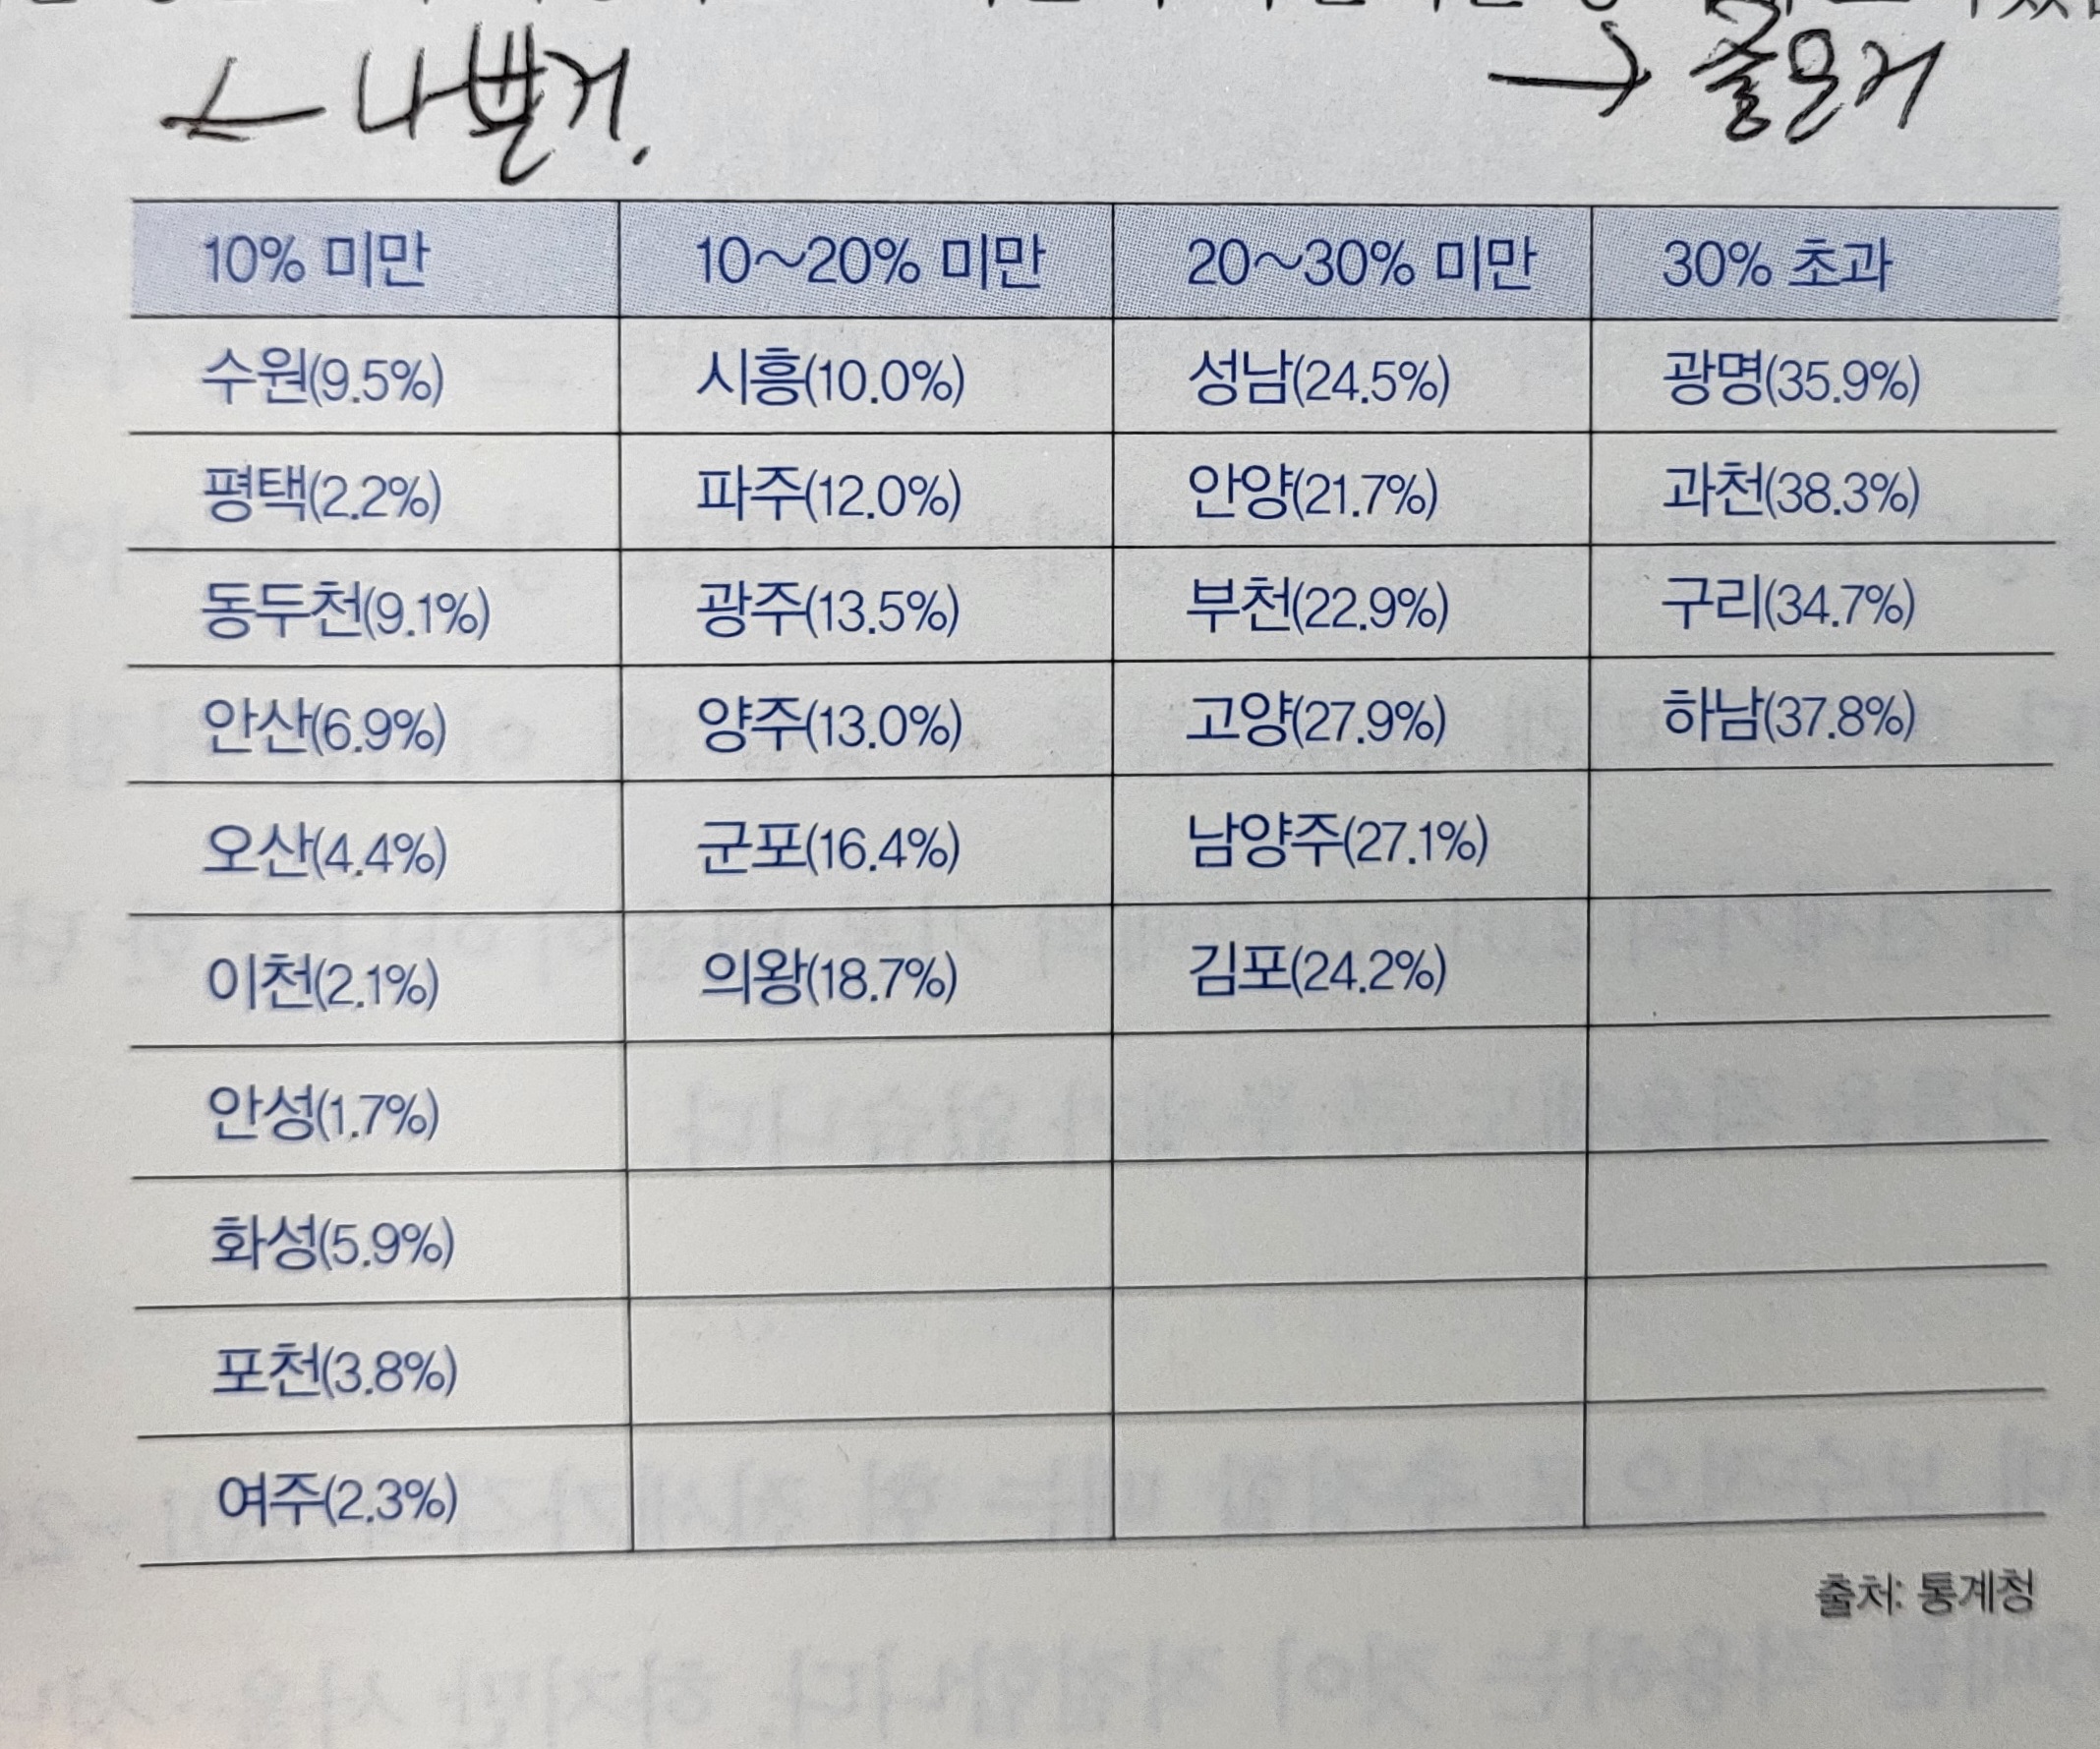 ← 나쁜거.
→ 좋은거
10% 미만 10~20% 미만 20~30% 미만 30% 초과
수원(9.5%) 시흥(10.0%) 성남(24.5%) 광명(35.9%)
평택(2.2%) 파주(12.0%) 안양(21.7%) 과천(38.3%)
동두천(9.1%) 광주(13.5%) 부천(22.9%) 구리(34.7%)
안산(6.9%) 양주(13.0%) 고양(27.9%) 하남(37.8%)
오산(4.4%) 군포(16.4%) 남양주(27.1%)
이천(2.1%) 의왕(18.7%) 김포(24.2%)
안성(1.7%)
화성(5.9%)
포천(3.8%)
여주(2.3%)
출처: 통계청